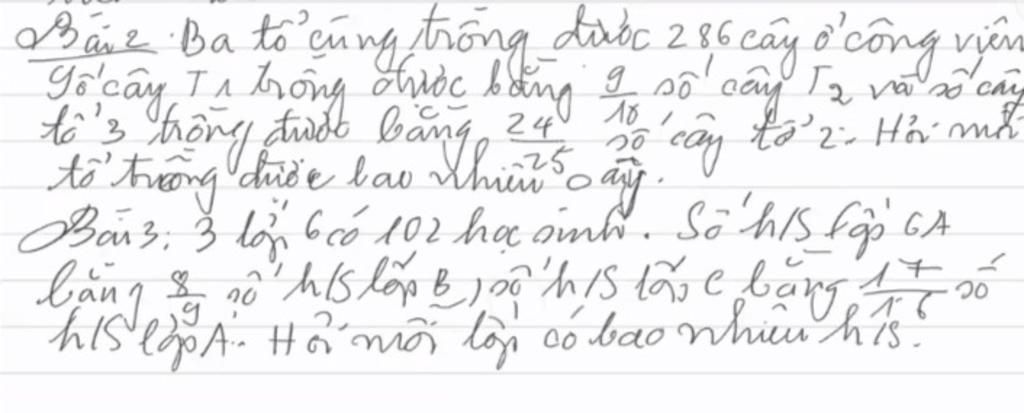 Bài 2. Ba tổ cùng trồng được 286 cây ở công viên
Số cây T1 trồng được bằng 9/10 số cây T2 và số cây
tổ 3 trồng được bằng 24/25 số cây tổ 2. Hỏi mỗi
tổ trồng được bao nhiêu cây.
Bài 3: 3 lớp 6 có 102 học sinh. Số h/s lớp 6A
bằng 8/9 số h/s lớp B, số h/s lớp C bằng 17/16 số
h/s lớp A. Hỏi mỗi lớp có bao nhiêu h/s.